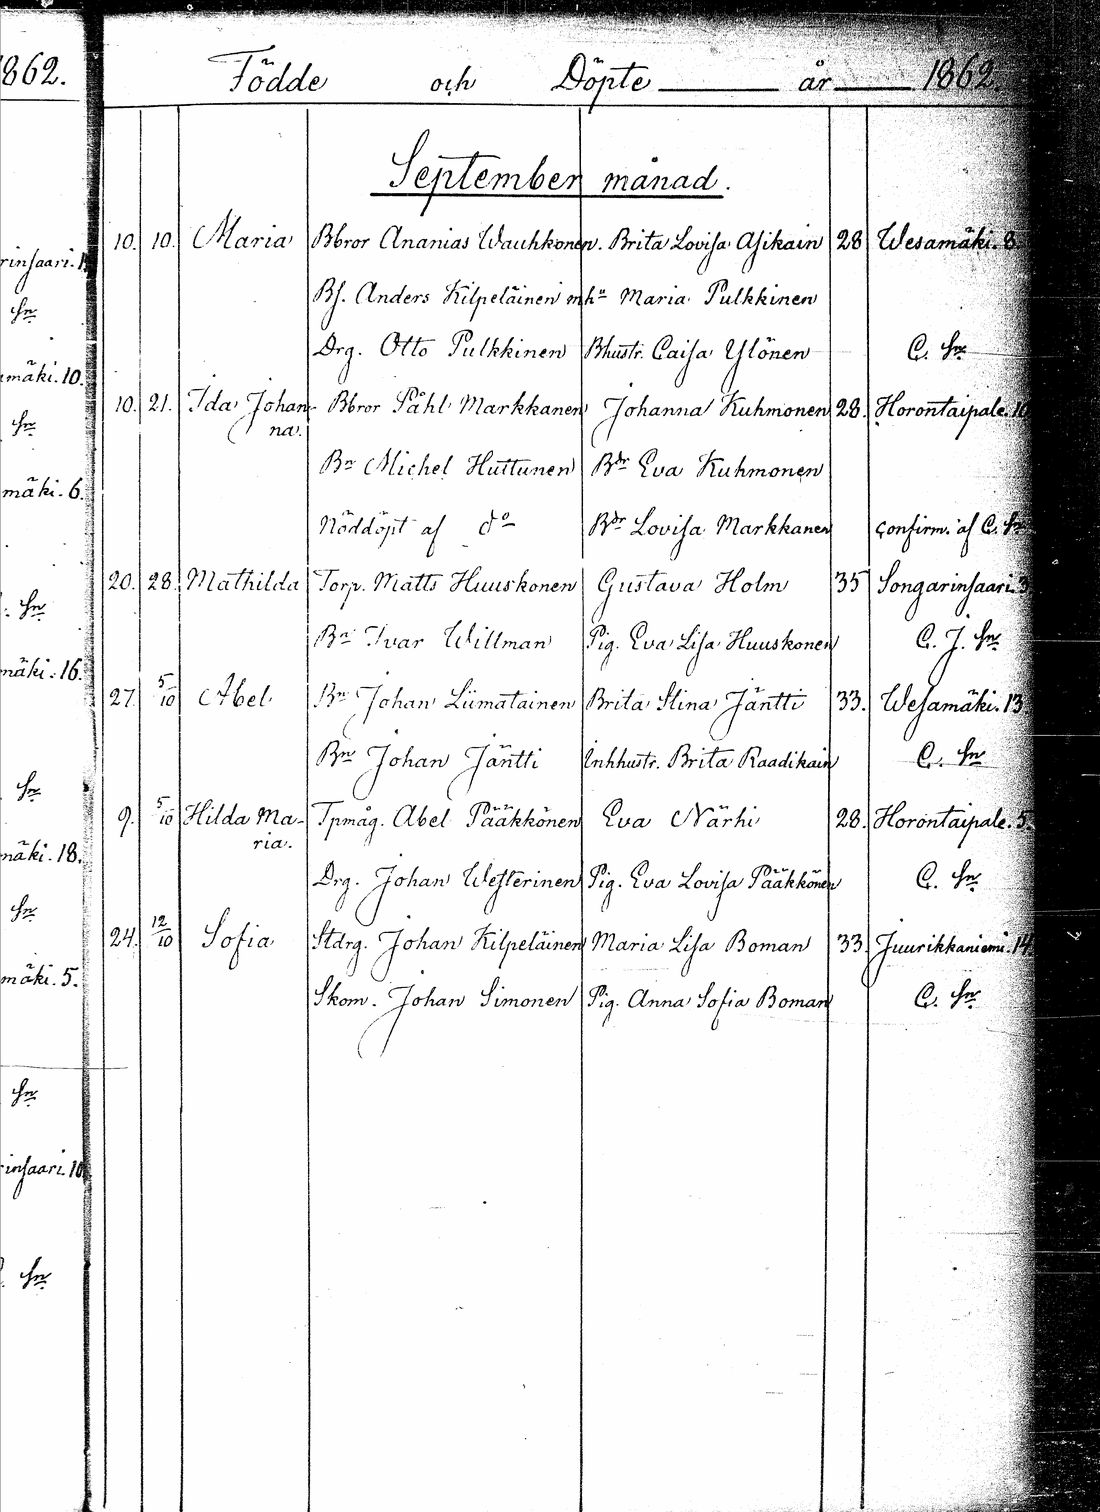 1862.
Födde och Döpte år 1862.
September månad.
10. 10. Maria Bbror Ananias Wauhkonen. Brita Lovisa Asikain 28 Wesamäki. 8.
Bs. Anders Kilpeläinen mhu Maria Pulkkinen
Drg. Otto Pulkkinen Bhustr. Caisa Ylönen C. Sn
10. 21. Ida Johan- Bbror Påhl Markkanen Johanna Kuhmonen 28. Horontaipale. 10
na.
Bn Michel Huttunen Bdr Eva Kuhmonen
Nöddöpt af do Bdr Lovisa Markkanen confirm. af C. Sn
20. 28. Mathilda Torp. Matts Huuskonen Gustava Holm 35 Songarinsaari. 3
Bn Ivar Willman Pig. Eva Lisa Huuskonen C. J. Sn
27. 5/10 Abel Bn Johan Liimatainen Brita Stina Jäntti 33. Wesamäki. 13
Bn Johan Jäntti Inhhustr. Brita Raadikain C. Sn
9. 5/10 Hilda Ma- Tpmåg. Abel Pääkkönen Eva Närhi 28. Horontaipale. 5.
ria.
Drg. Johan Westerinen Pig. Eva Lovisa Pääkkönen C. Sn
24. 12/10 Sofia Stdrg. Johan Kilpeläinen Maria Lisa Boman 33. Juurikkaniemi. 14.
Skom. Johan Simonen Pig. Anna Sofia Boman C. Sn
rinsaari. 1
Sn
mäki. 10.
Sn
mäki. 6.
Sn
mäki. 16.
Sn
mäki. 18.
Sn
mäki. 5.
Sn
rinsaari. 10
Sn